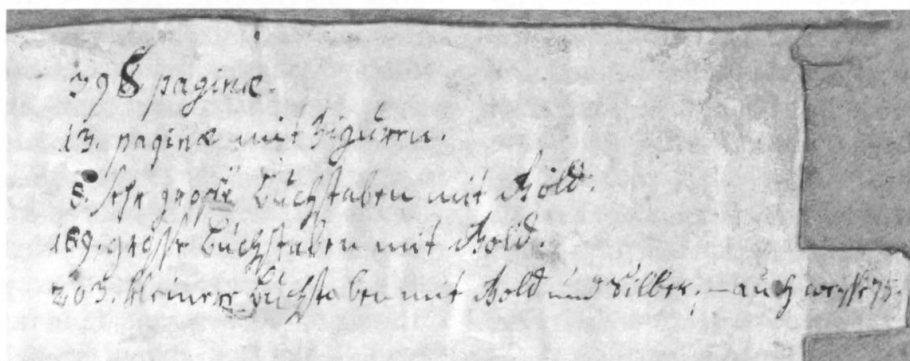 398 paginæ.
13. paginæ mit Figuren.
8. sehr große Buchstaben mit Gold.
189. grosse Buchstaben mit Gold.
203. kleinere Buchstaben mit Gold und Silber, – auch